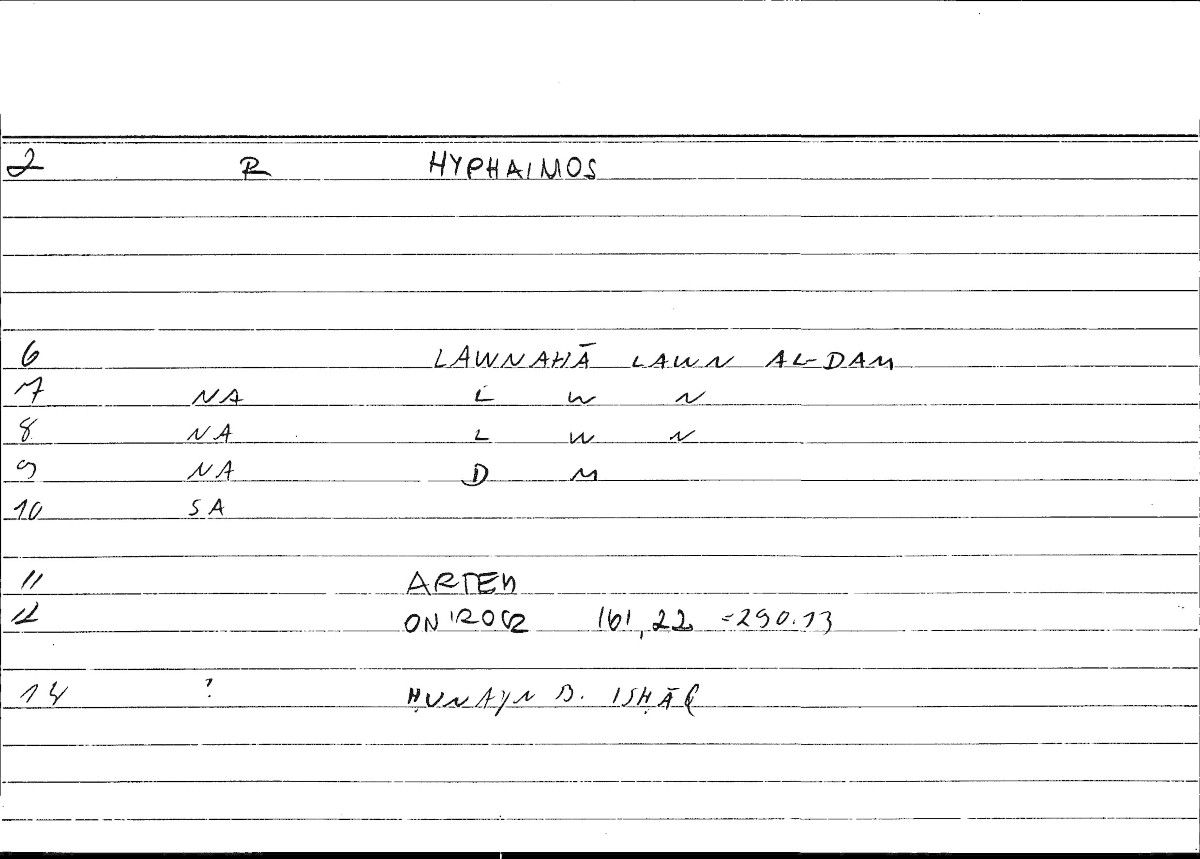 2 R HYPHAIMOS
6 LAWNAHĀ LAWN AL-DAM
7 NA L W N
8 NA L W N
9 NA D M
10 SA
11 ARTEM
12 161,22 =290.13
14 ? ḤUNAYN B. ISḤĀQ